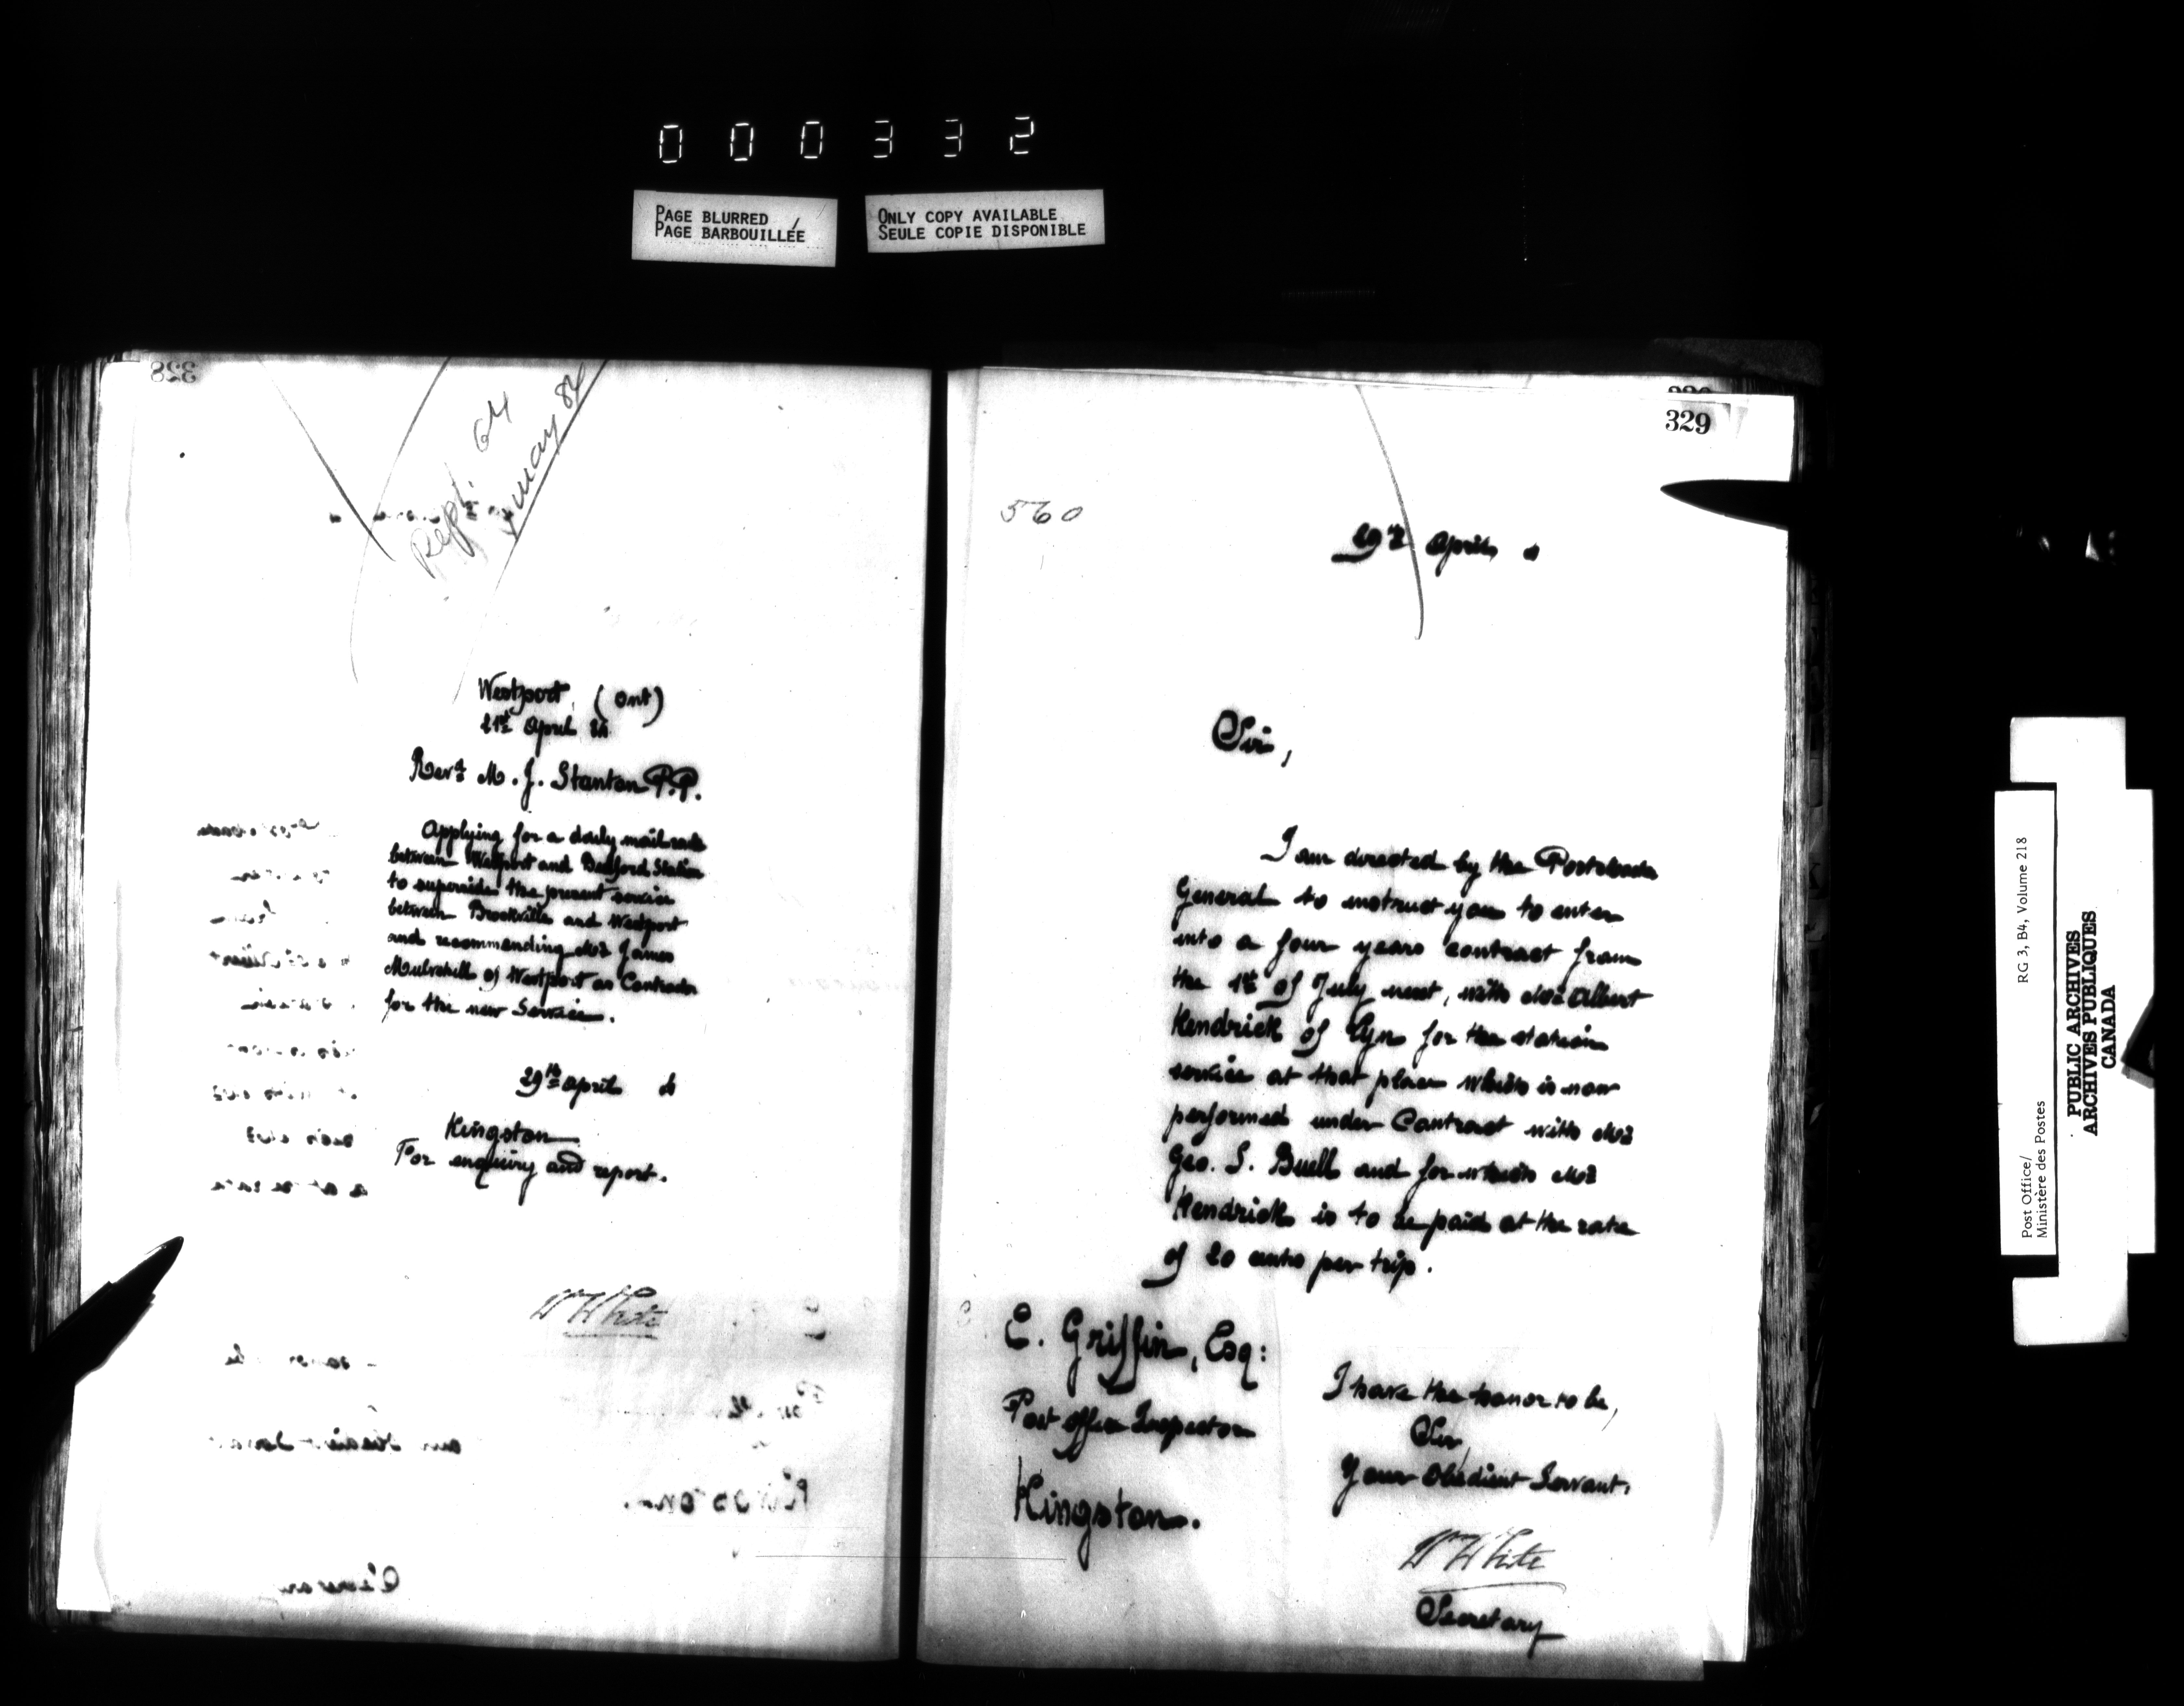 000332
PAGE BLURRED
PAGE BARBOUILLÉE
ONLY COPY AVAILABLE
SEULE COPIE DISPONIBLE
328
Westport (Ont)
21st April 84
Revd M. J. Stanton P.P.
Applying for a daily mail route
between Westport and Bedford Station
to supersede the present service
between Brockville and Westport
and recommending Mr James
Mulvehill of Westport as Contractor
for the new Service.
29th April
Kingston
For enquiry and report.
W White
329
560
29th April
Sir,
I am directed by the Postmaster
General to instruct you to enter
into a four years contract from
the 1st of July next, with Mr Albert
Kendrick of Lyn for the station
service at that place which is now
performed under Contract with Mr
Geo. S. Buell and for which Mr
Kendrick is to be paid at the rate
of 20 cents per trip.
I have the honor to be,
Sir,
Your Obedient Servant.
W White
Secretary
E. Griffin, Esq:
Post Office Inspector
Kingston.
Post Office/
Ministère des Postes
RG 3, B4, Volume 218
PUBLIC ARCHIVES
ARCHIVES PUBLIQUES
CANADA